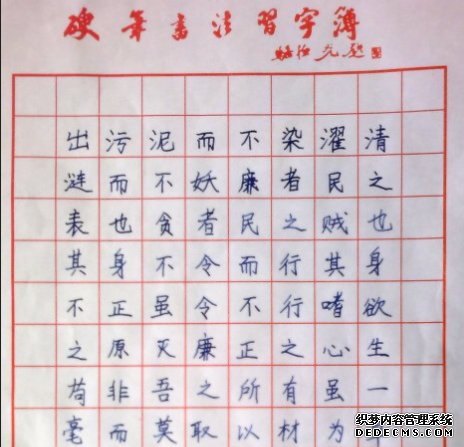 硬筆書法習字簿
駱恒光題
出污泥而不染濯清
涟而不妖廉者民之
表也贪者民之贼也
其身不令而行其身
不正虽令不行嗜欲
之原灭廉正之心生
苟非吾之所有虽一
毫而莫取以材为
织梦内容管理系统
DEDECMS.COM